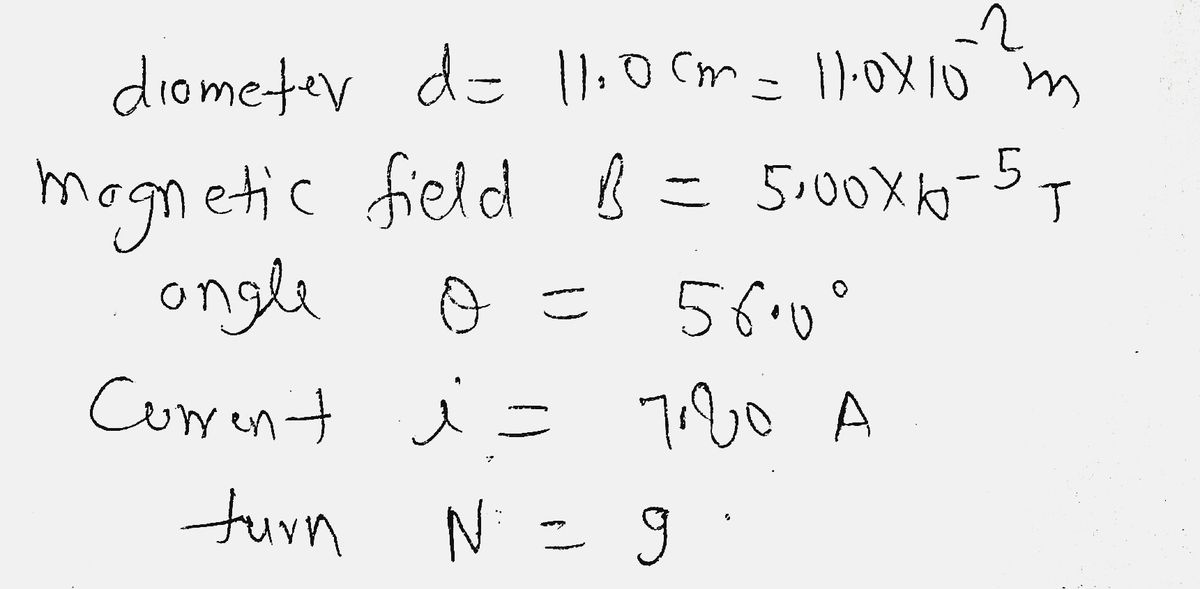 diameter d = 11.0 cm = 11.0X10⁻² m
magnetic field B = 5.00X10⁻⁵ T
angle θ = 56.0°
Current i = 7.20 A
turn N = 9.